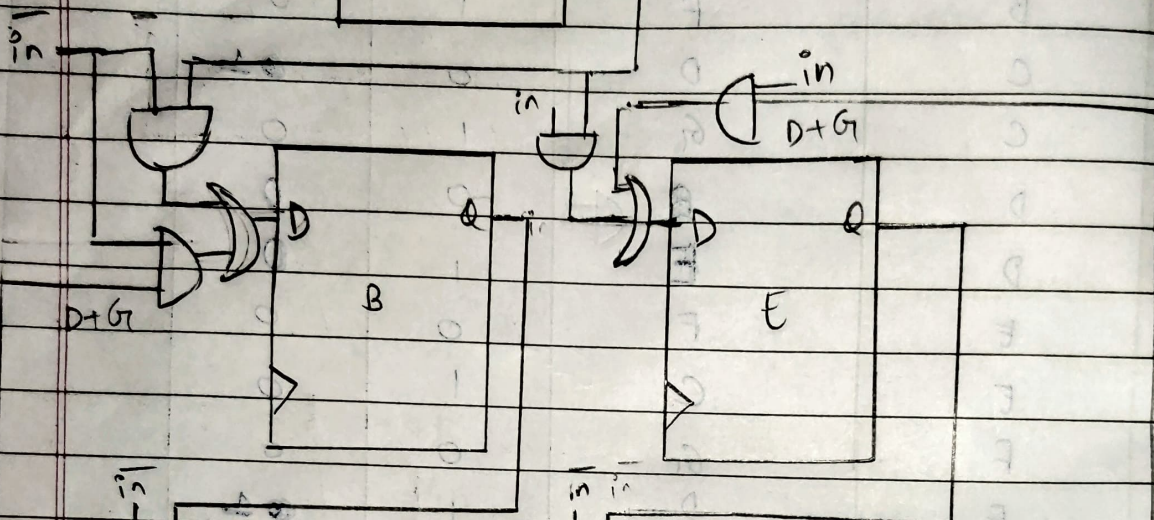 i̅n̅
in
in
D+G
D Q
D Q
B
E
D+G
i̅n̅
i̅n̅ i̅n̅